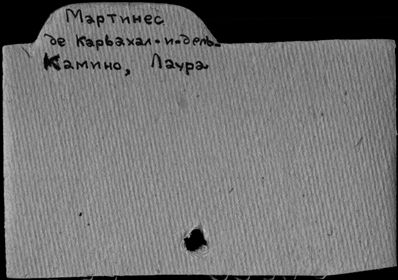 Мартинес
де Карвахал-и-дель-
Камино, Лаура